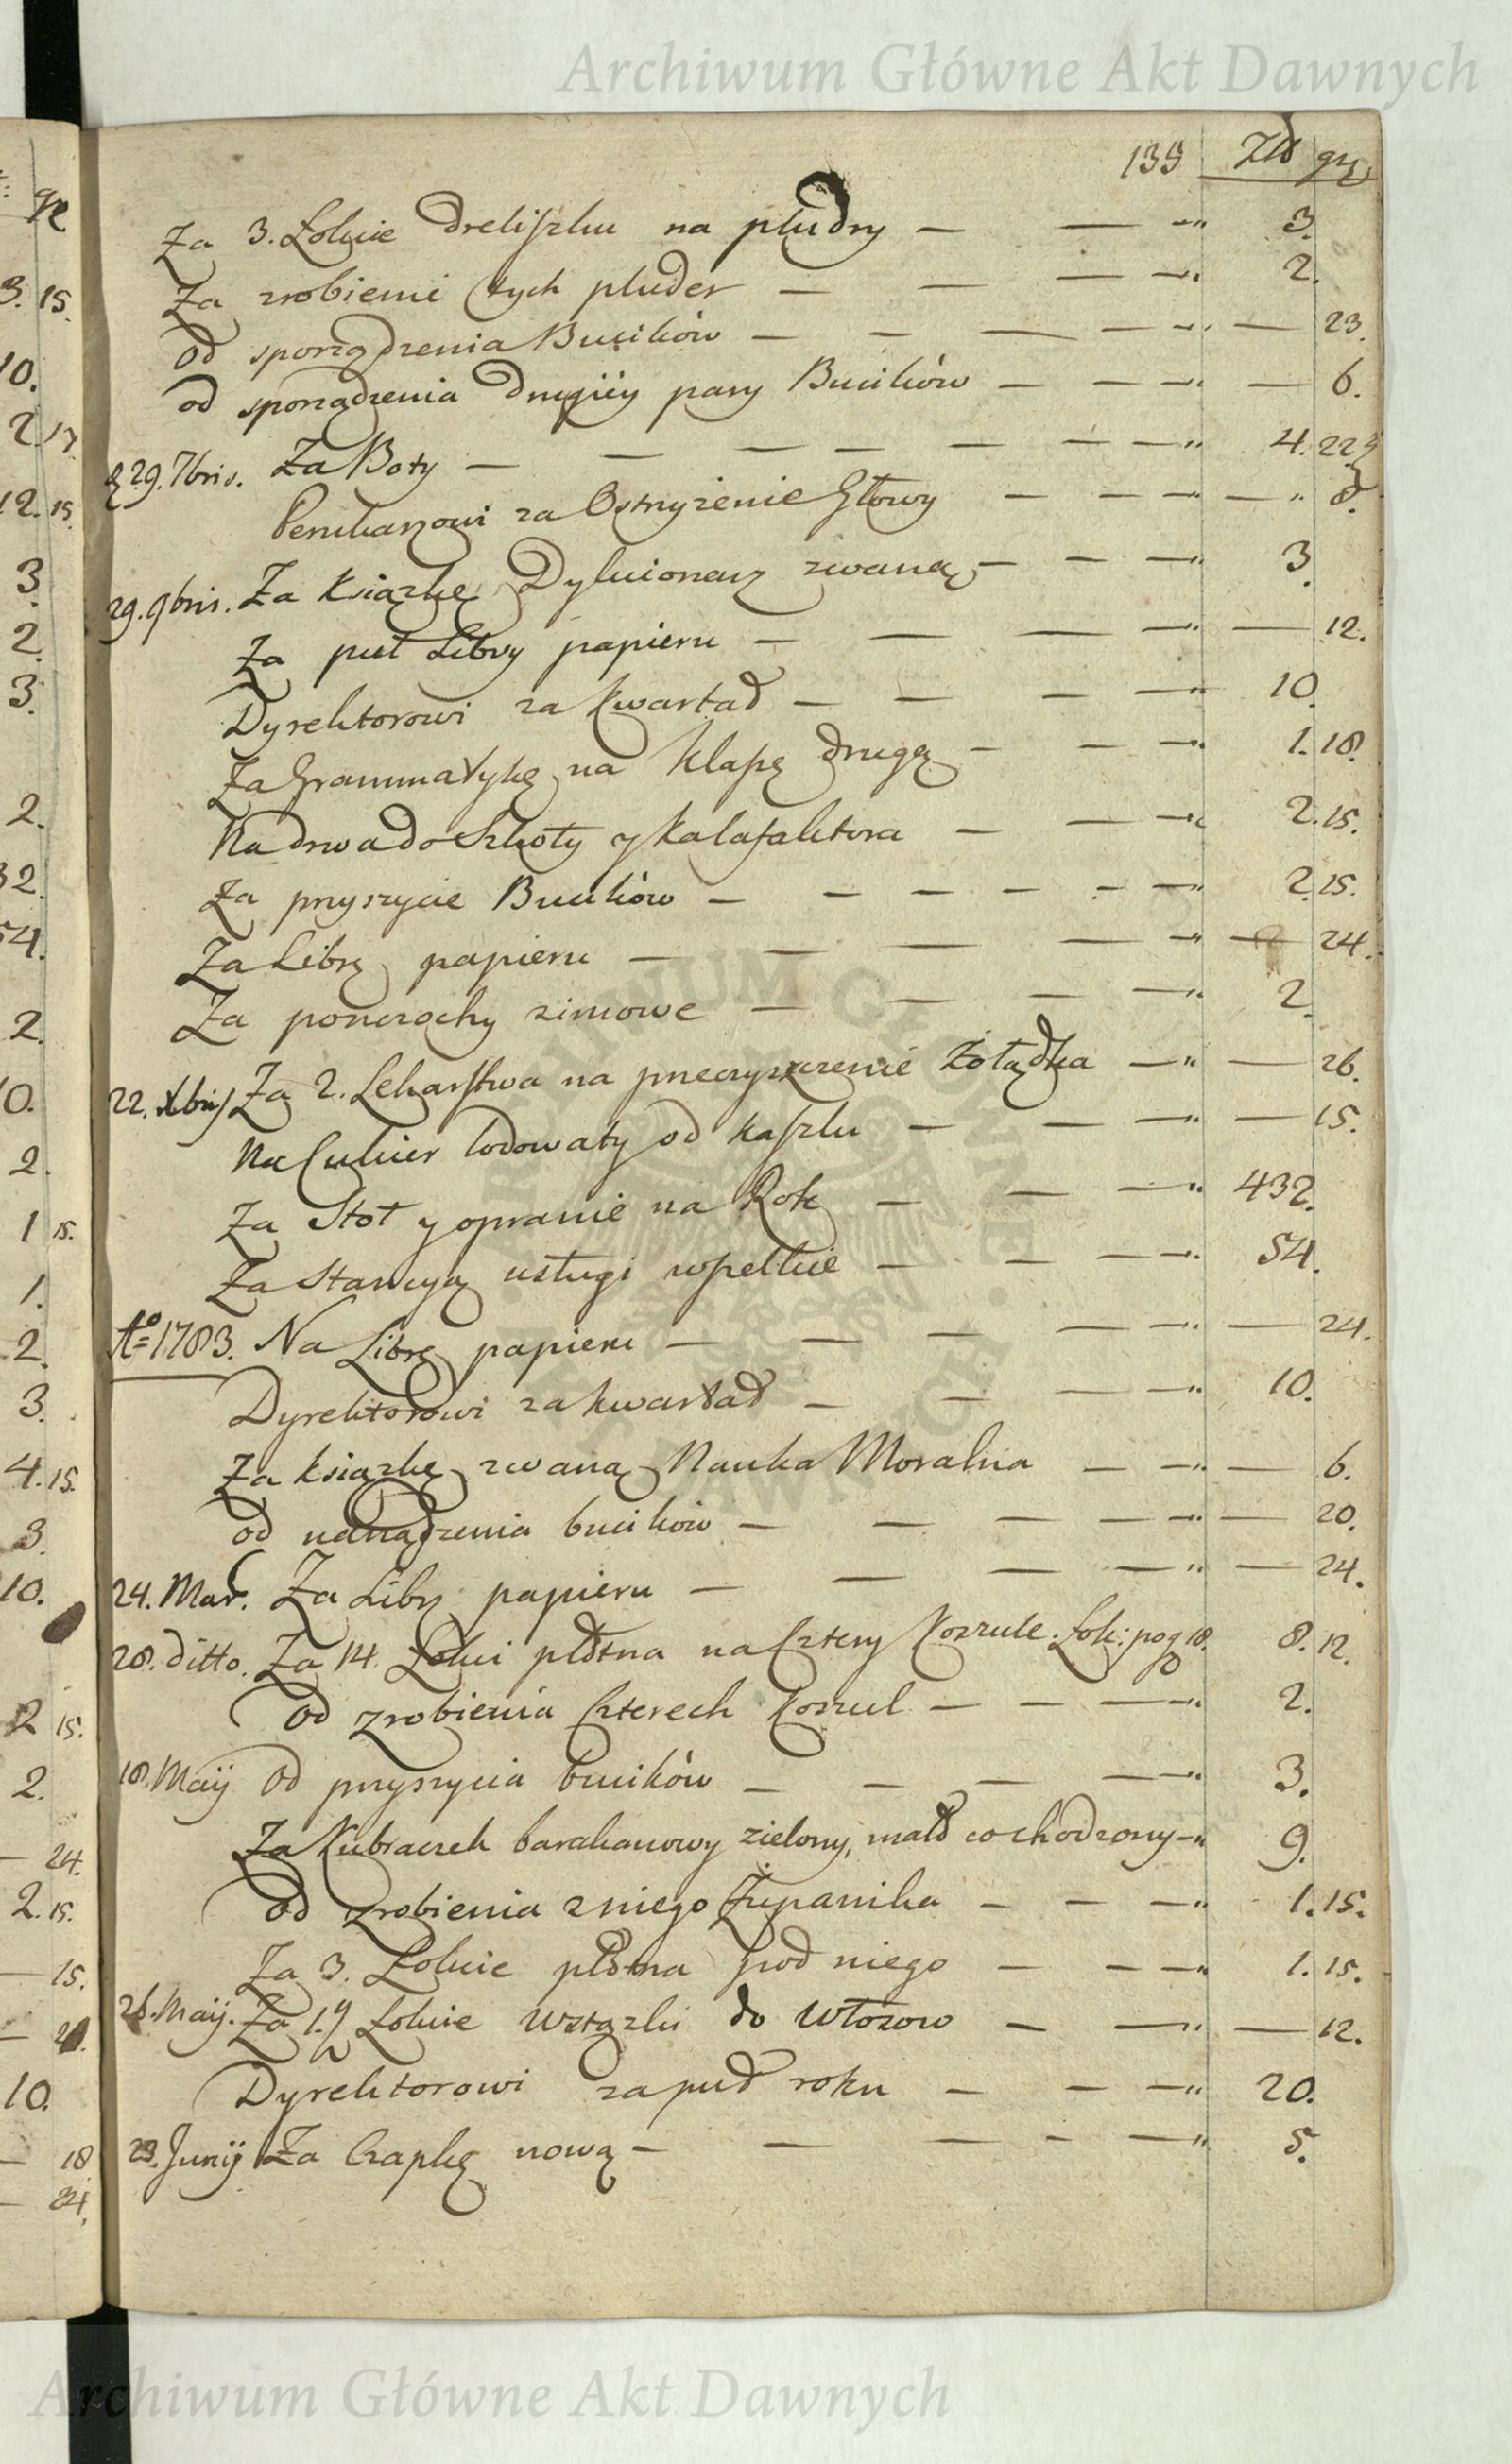 Archiwum Główne Akt Dawnych
139 Złł gr
Za 3. Łokcie Dreliszku na pludry — — — 3.
Za zrobienie tych pluder — — — — 2.
od sporządzenia Bucików — — — — — — 23.
od sporządzenia drugiiey pary Bucików — — — — 6.
29. 7bris. Za Boty — — — — — — 4. 22
Perukarzowi za Ostryżenie Głowy — — — — 8.
29. 9bris. Za Książkę Dykcionarz zwaną — — — 3.
Za puł Libry papieru — — — — — 12.
Dyrektorowi za kwartał — — — — 10.
Za Grammatykę na klassę drugą — — — 1. 18.
Na drwa do Szkoły y Kalafaktora — — — 2. 15.
Za przyszycie Bucików — — — — — — 2. 15.
Za Librę papieru — — — — — — 24.
Za ponczochy zimowe — — — — 2.
22. Xbris Za 2. Lekarstwa na przeczyszczenie Żołądka — — 26.
Na Cukier lodowaty od kaszlu — — — — 15.
Za Stoł y opranie na Rok — — — 432.
Za Stancyą usługi wszelkie — — — — 54.
Aº 1783. Na Librę papieru — — — — — — 24.
Dyrektorowi za kwartał — — — — 10.
Za książkę zwaną Nauka Moralna — — — 6.
od narządzenia bucików — — — — — — 20.
24. Mar. Za Librę papieru — — — — — — 24.
28. ditto. Za 14. Łokci płótna na Cztery Koszule. Łok: po g 18. 8. 12.
Od zrobienia Czterech koszul — — — 2.
18. Maij Od przyszycia bucików — — — — 3.
Za Kubraczek barakanowy zielony, mało co chodzony — 9.
Od zrobienia z niego Żupanika — — — 1. 15.
Za 3. Łokcie płótna pod niego — — — 1. 15.
26. Maij. Za 1. Łokcie Wstążki do Włosow — — — 12.
Dyrektorowi za puł roku — — — 20.
23. Junij Za Czapkę nową — — — — — 5.
Archiwum Główne Akt Dawnych